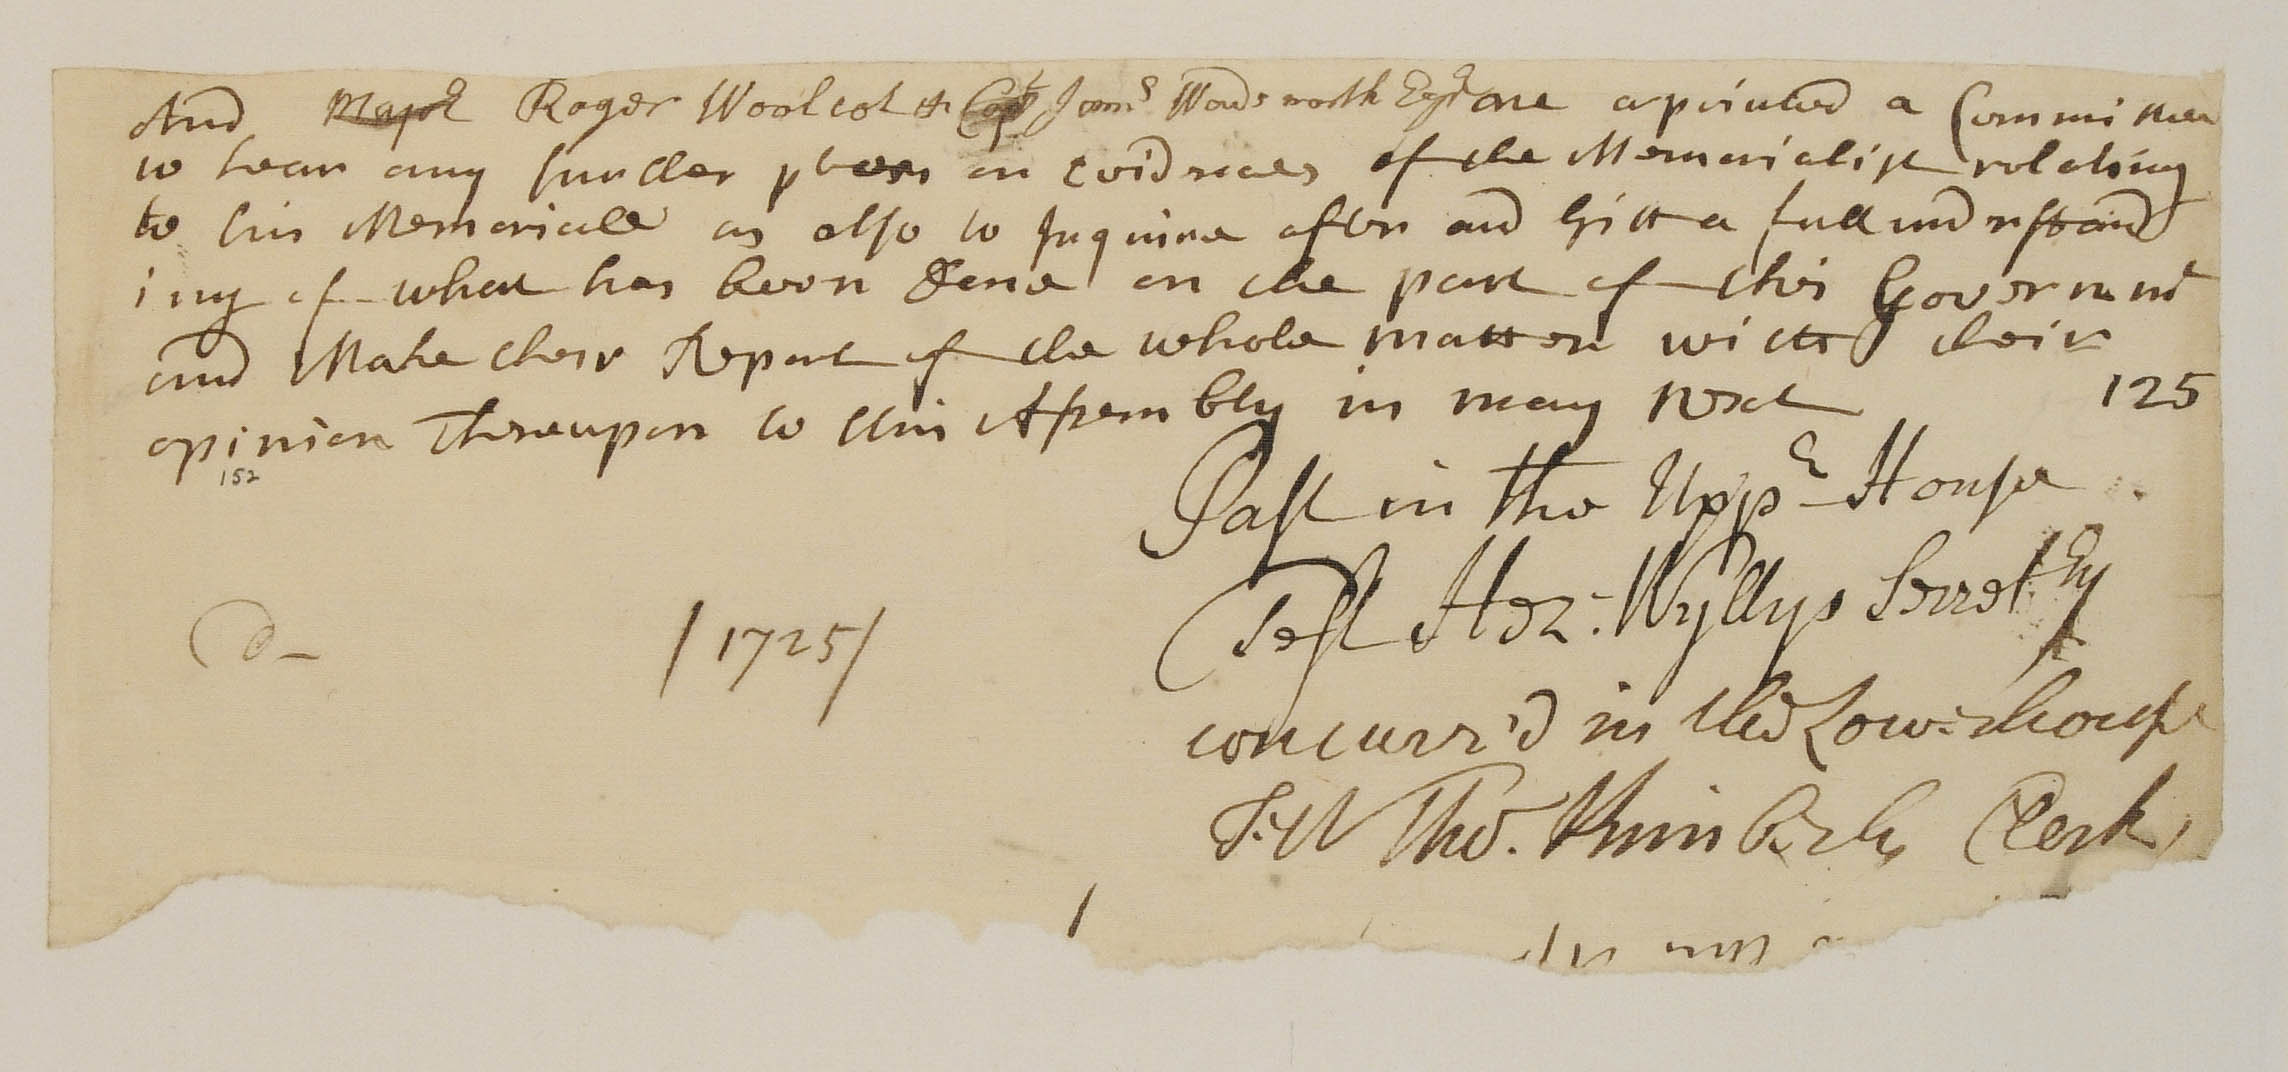 And Major Roger Woolcot & Capt Jams Wadsworth Esqr are apointed a Committee
to hear any further pleas or Evidnces of the Memorialist relating
to his Memoriall as also to Inquire after and Gitt a full undrstand
ing of what has been Done on the part of this Governmnt
and Make their Report of the whole matter with their
opinion Thereupon to this Assembly in may Next
125
152
Past in the Uppr House
Test Hez: Wyllys Secretry
/1725/
concurr'd in the Low: house
Test Tho. Kimberly Clerk